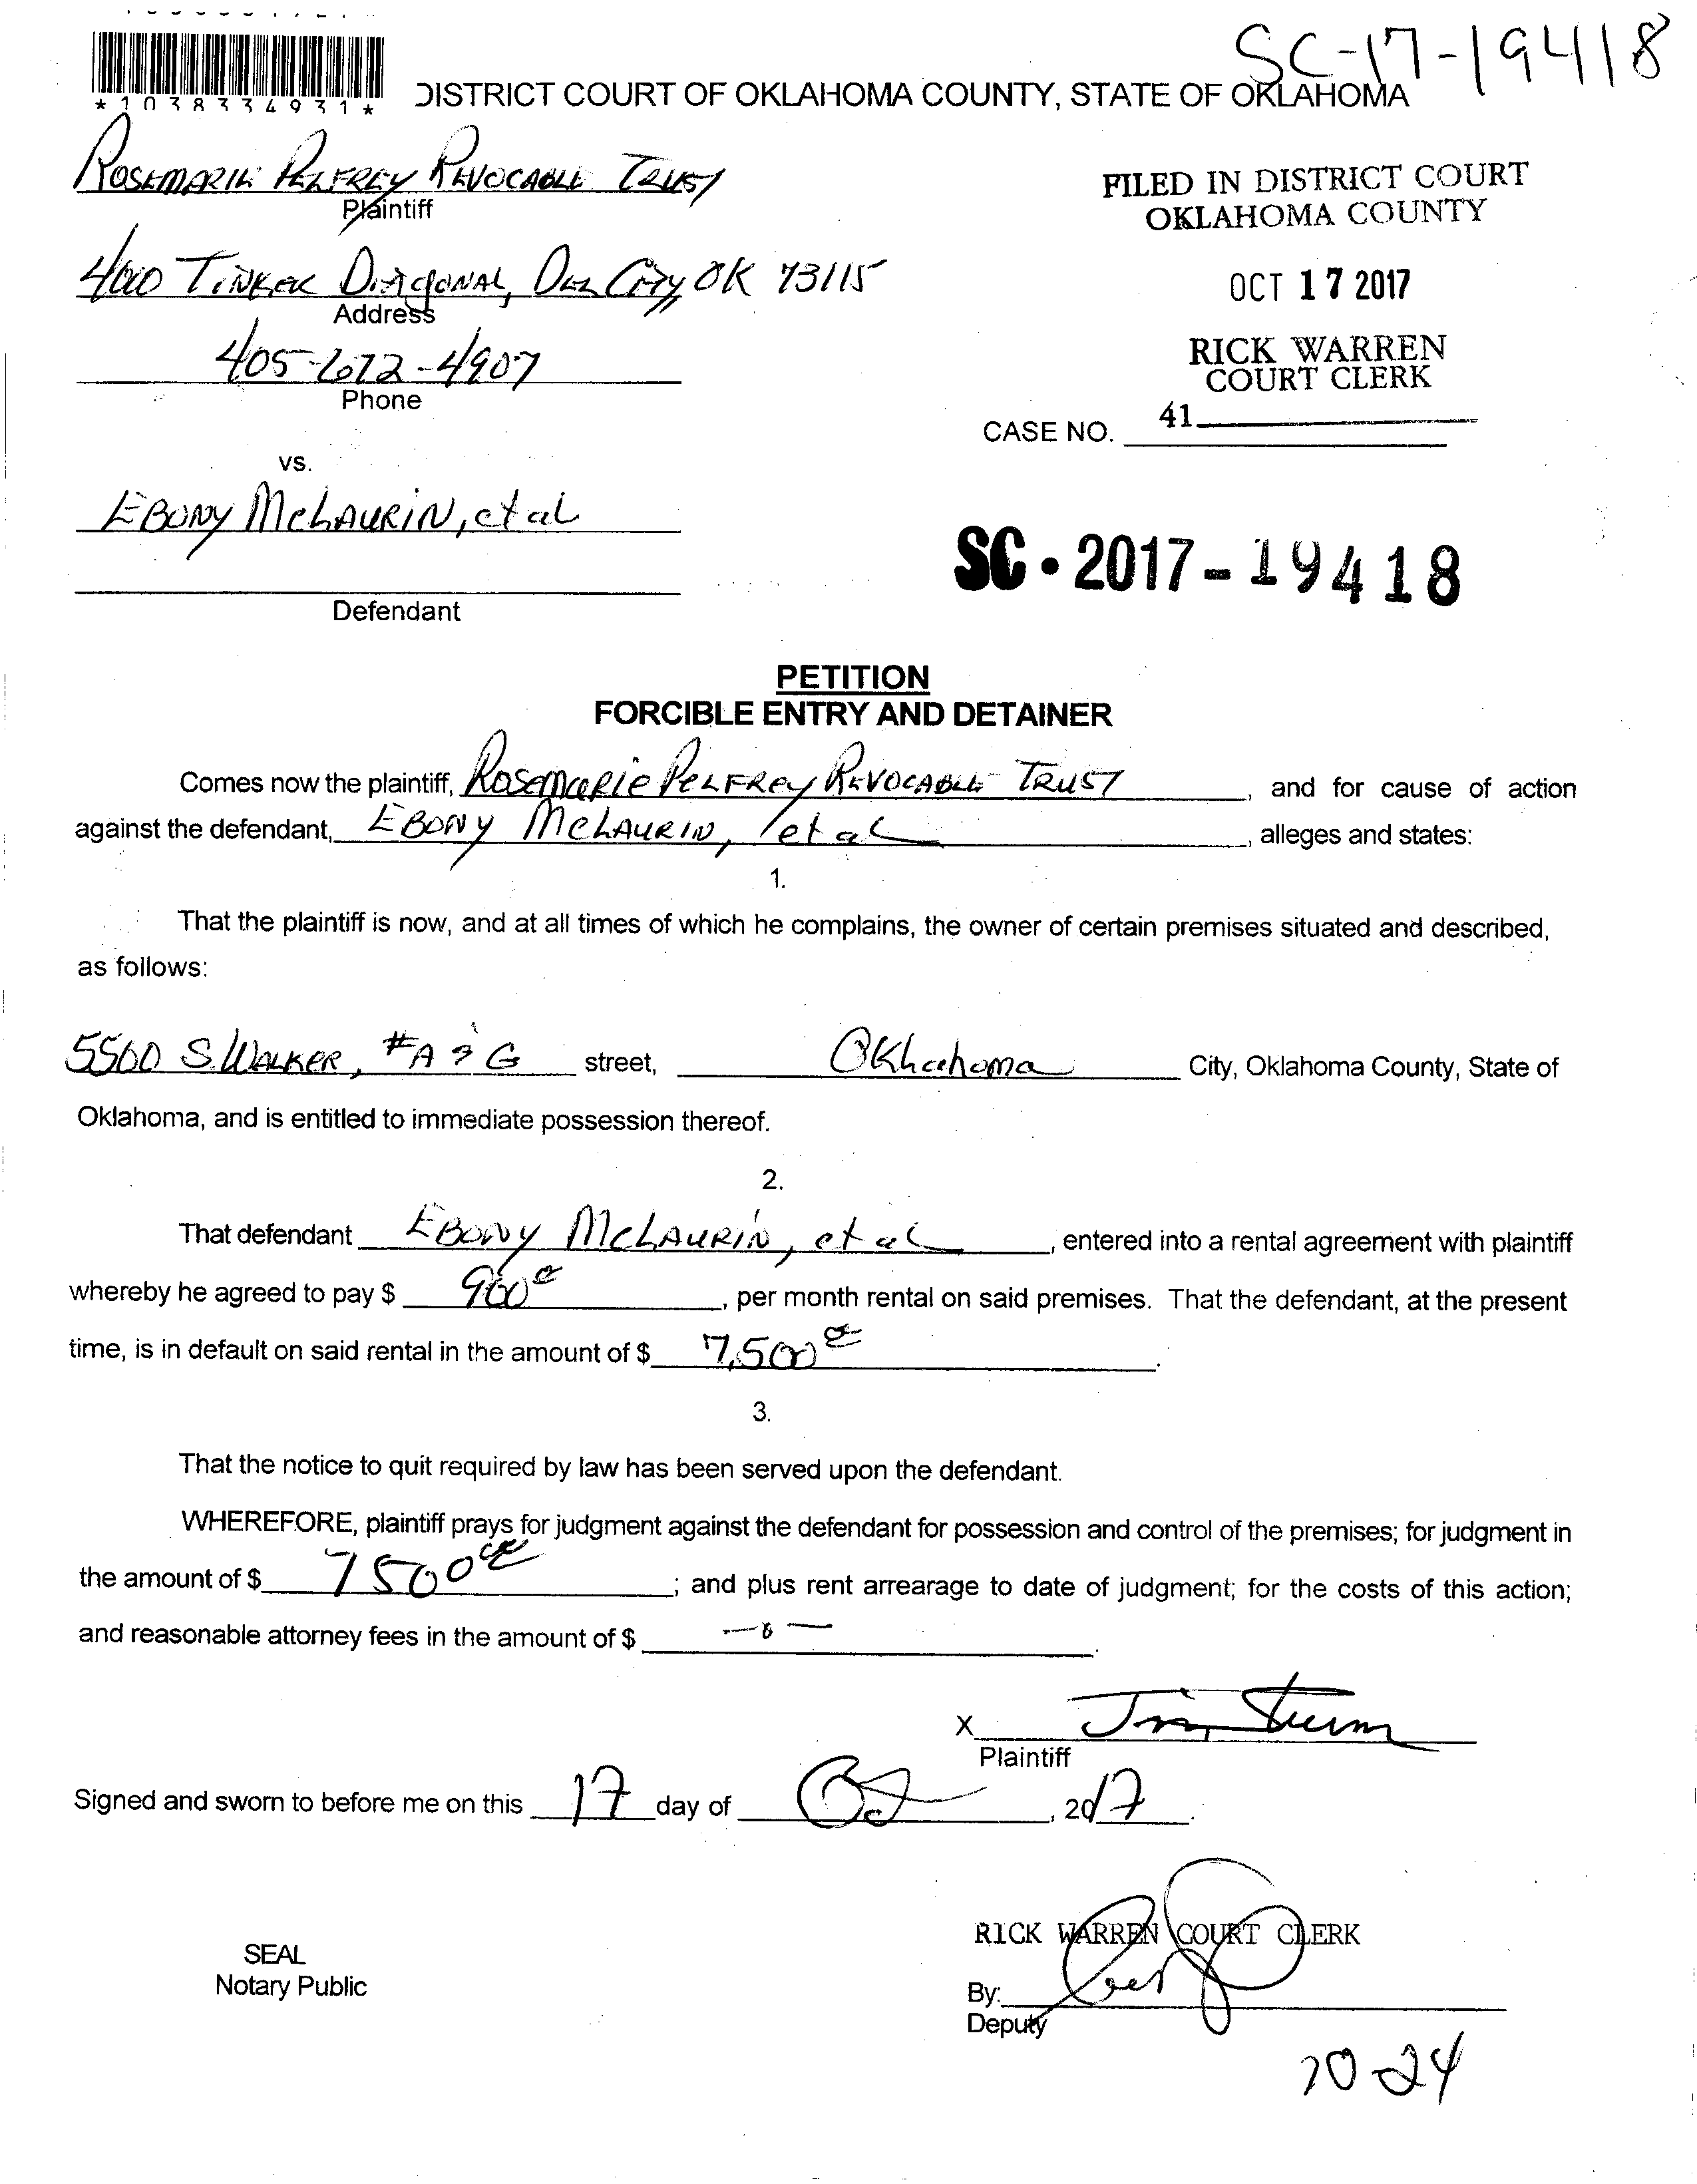 SC-17-19418
*1038334931*
DISTRICT COURT OF OKLAHOMA COUNTY, STATE OF OKLAHOMA
ROSEMARIE PELFREY REVOCABLE TRUST
Plaintiff
FILED IN DISTRICT COURT
OKLAHOMA COUNTY
TINKER DIAGONAL, DEL CITY OK 73115
Address
OCT 17 2017
405-672-4907
Phone
RICK WARREN
COURT CLERK
CASE NO. 41
vs.
EBONY McLAURIN, et al
SC • 2017 - 19418
Defendant
PETITION
FORCIBLE ENTRY AND DETAINER
Comes now the plaintiff, ROSEMARIE PELFREY REVOCABLE TRUST, and for cause of action
against the defendant, EBONY McLAURIN, et al, alleges and states:
1.
That the plaintiff is now, and at all times of which he complains, the owner of certain premises situated and described,
as follows:
5500 S. WALKER, #A & G street, Oklahoma City, Oklahoma County, State of
Oklahoma, and is entitled to immediate possession thereof.
2.
That defendant EBONY McLAURIN, et al, entered into a rental agreement with plaintiff
whereby he agreed to pay $ , per month rental on said premises. That the defendant, at the present
time, is in default on said rental in the amount of $ 7,500 .
3.
That the notice to quit required by law has been served upon the defendant.
WHEREFORE, plaintiff prays for judgment against the defendant for possession and control of the premises; for judgment in
the amount of $ 7500 ; and plus rent arrearage to date of judgment; for the costs of this action;
and reasonable attorney fees in the amount of $ -0- .
X
Plaintiff
Signed and sworn to before me on this 17 day of Oct, 2017.
RICK WARREN COURT CLERK
SEAL
Notary Public
By:
Deputy
10-24